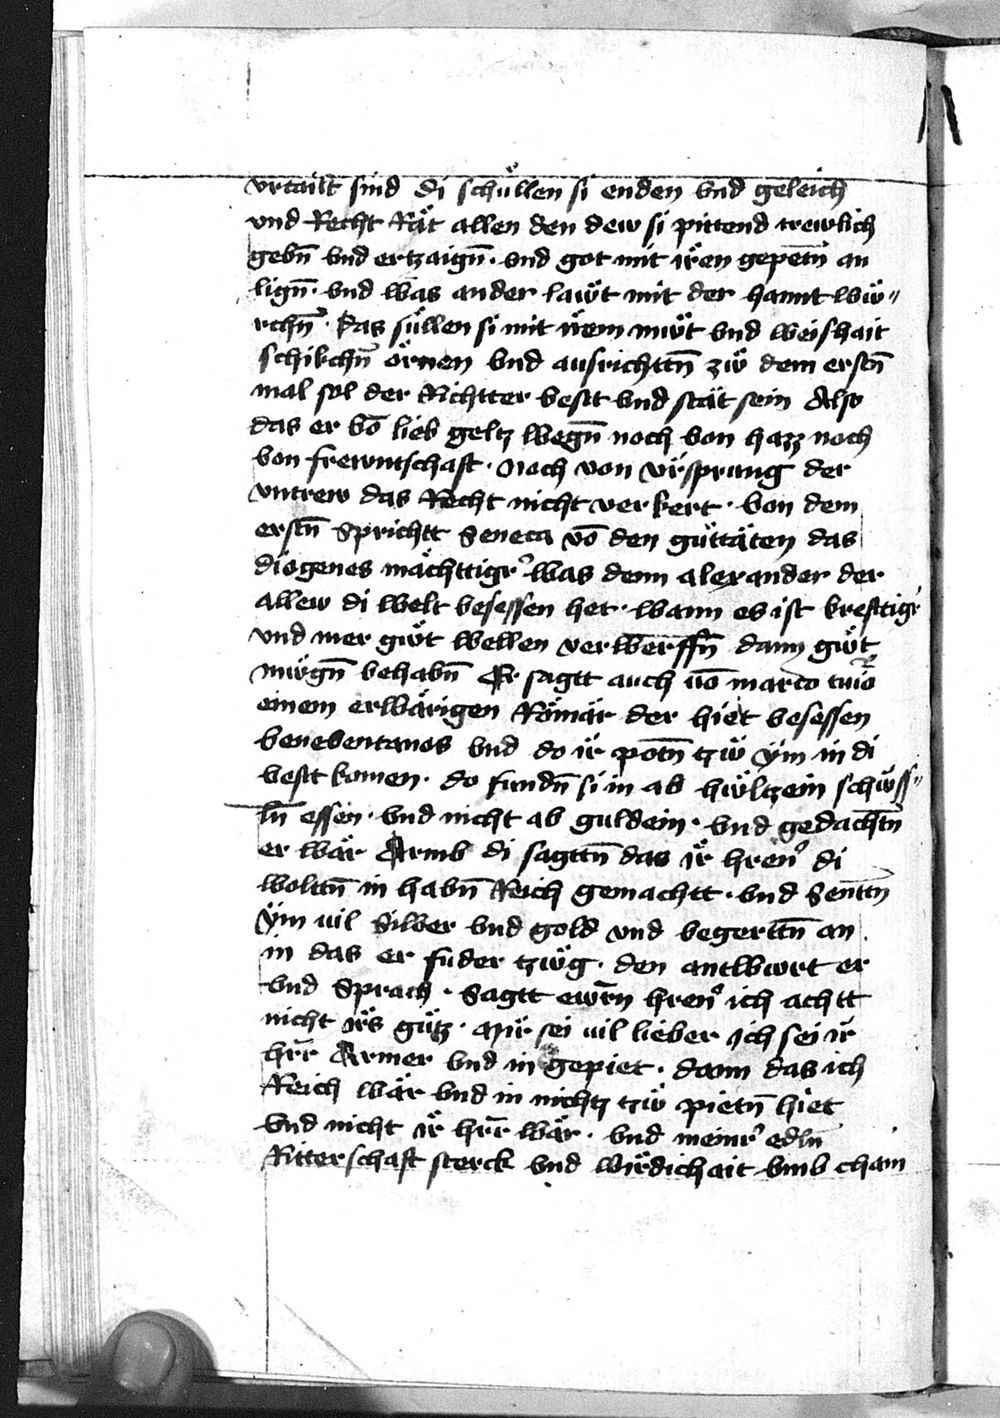 vrtailt sind di schüllen si enden vnd geleich
vnd Recht Rät allen den dew si pittend trewlich
gebn̄ vnd ertzaign̄ · vnd got mit iren gepetn̄ an
lign̄ · vnd was ander lawt mit der hannt wü〃
rchn̄ · das süllen si mit irem müt vnd weishait
schikchn̄ örnen vnd ausrichttn̄ zw dem erstn̄
mal sol der Richtter vestt vnd stät sein Also
das er vō lieb geltz wegn̄ noch von hazz noch
von frewntschaft · noch von vrsprung der
vntrew das Recht nicht verkert · von dem
erstn̄ Sprichtt Seneca vō den güttäten das
diogenes mächttigr̓ was denn alexander der
allew di welt besessen het · wann es ist krefttigr̓
vnd mer gwt wellen verwerffn̄ dann gwt
mügn̄ behabn̄ Er sagtt auch vō marco tuiō
einem erwärigen Römär der hiet besessen
beneventanos vnd do ir potn̄ tzw ÿm in di
vestt komen · do fundn̄ si in ab hültzein schüss〃
ln̄ essen · vnd nicht ab guldein · vnd gedachtn̄
er wär Armb di sagttn̄ das ir hren̓ di
wolttn̄ in habn̄ Reich gemachtt · vnd Senttn̄
ÿm uil Silber vnd gold vnd begerttn̄ an
in das er fuder tzüg · den antwurt er
vnd Sprach · Sagtt ewrn̄ hren̓ ich achtt
nicht irs gütz · Mir sei uil lieber ich sei ir
hr̄r Armer vnd in gepiet · dann das ich
Reich wär vnd in nichtz tzw pietn̄ hiet
vnd nicht ir hr̄r wär · vnd meinr̓ edln̄
Ritterschaft sterck vnd wirdichait vmb chain